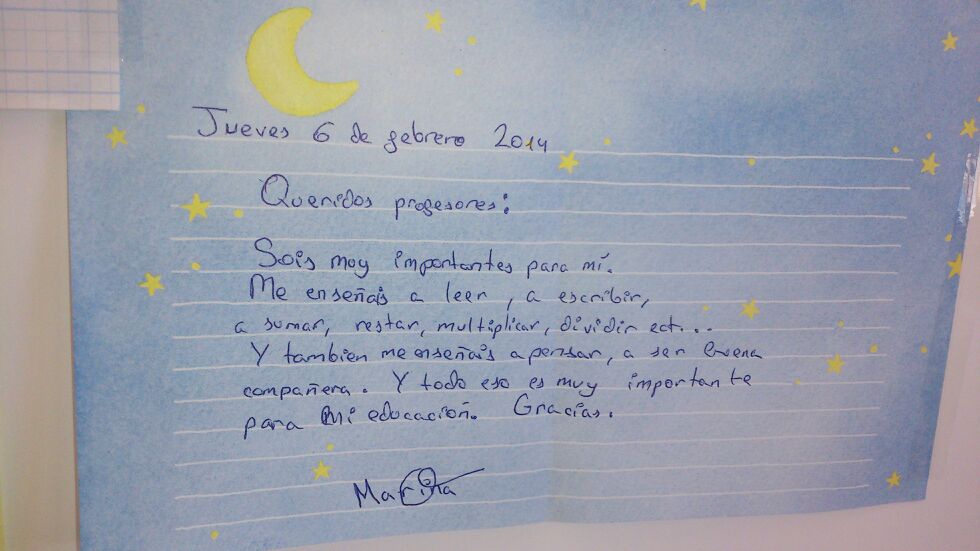 Jueves 6 de febrero 2014
Queridos profesores:
Sois muy importantes para mí.
Me enseñais a leer, a escribir,
a sumar, restar, multiplicar, dividir ect...
Y tambien me enseñais a pensar, a ser buena
compañera. Y todo eso es muy importante
para mi educación. Gracias.
Marina